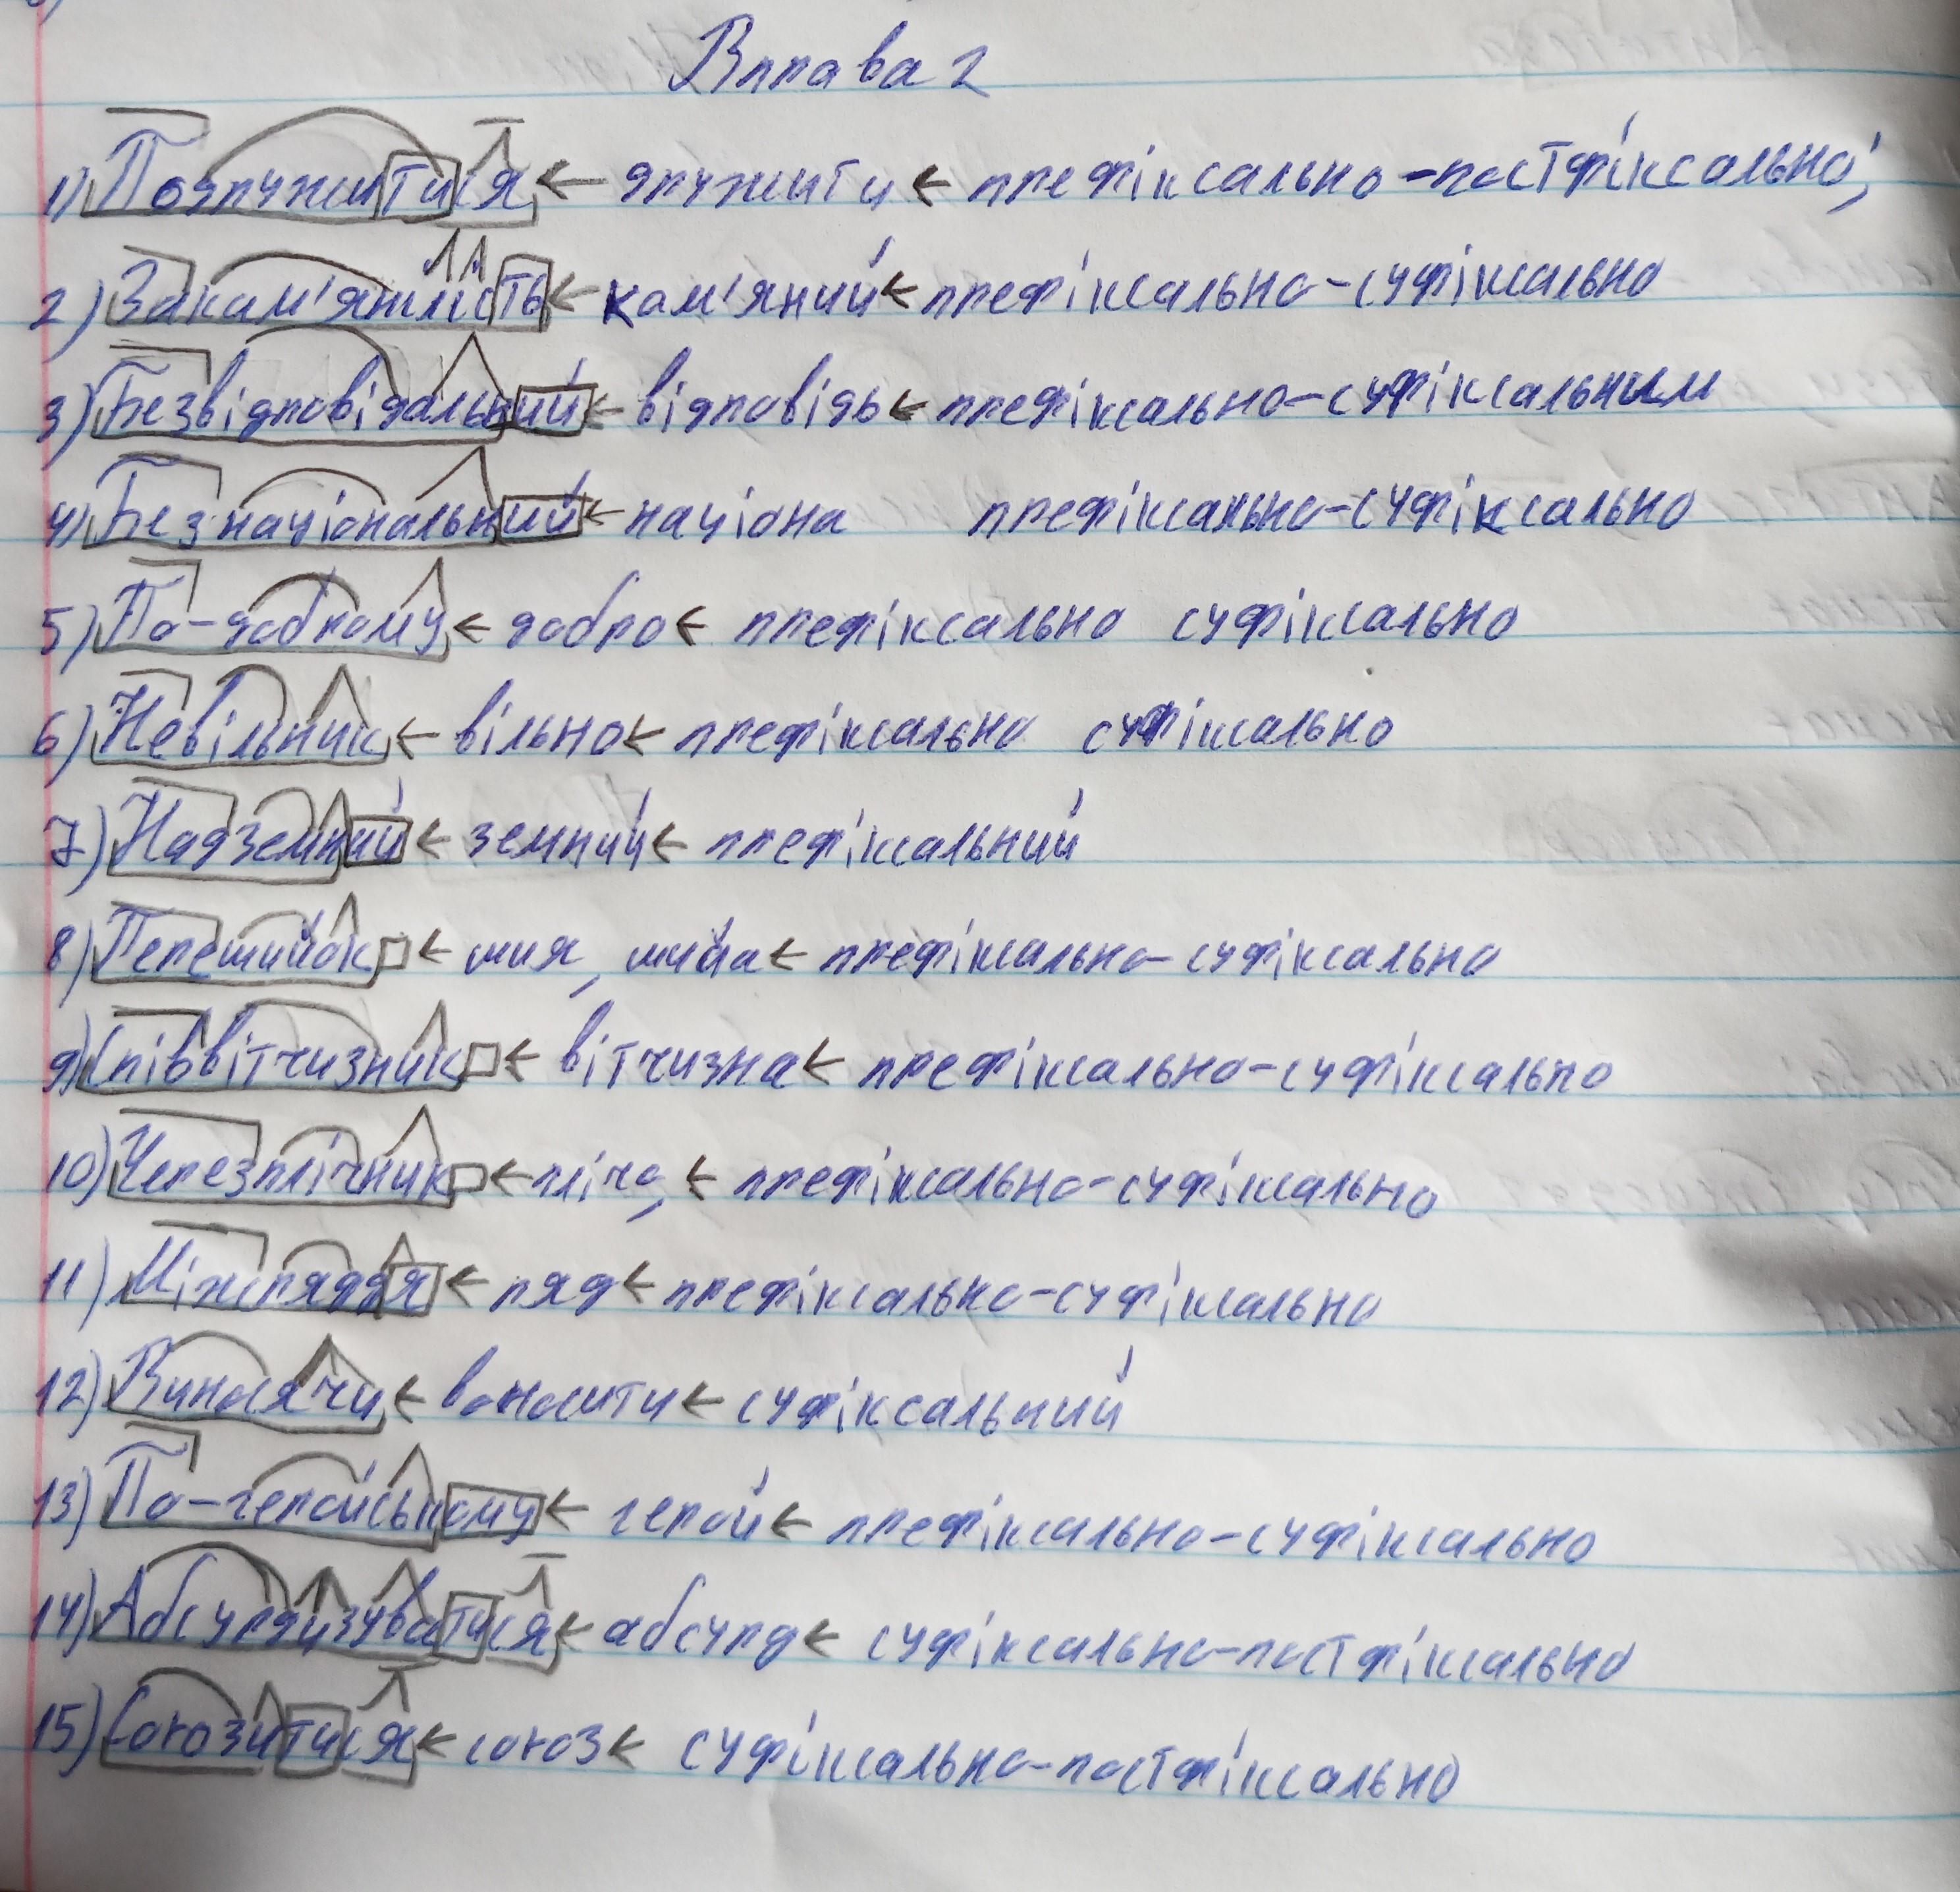 Вправа 2
1) Подружитися ← дружити ← префіксально-постфіксально;
2) Закам'янілість ← кам'яний ← префіксально-суфіксально
3) Безвідповідальний ← відповідь ← префіксально-суфіксальним
4) Безнаціональний ← націона префіксально-суфіксально
5) По-доброму ← добро ← префіксально суфіксально
6) Невільник ← вільно ← префіксально суфіксально
7) Надземний ← земний ← префіксальний
8) Перешийок ← шия, шийа ← префіксально-суфіксально
9) Співвітчизник ← вітчизна ← префіксально-суфіксально
10) Черезплічник ← пліч ← префіксально-суфіксально
11) Міжряддя ← ряд ← префіксально-суфіксально
12) Виносячи ← воносити ← суфіксальний
13) По-геройському ← герой ← префіксально-суфіксально
14) Абсурдизуватися ← абсурд ← суфіксально-постфіксально
15) Союзитися ← союз ← суфіксально-постфіксально